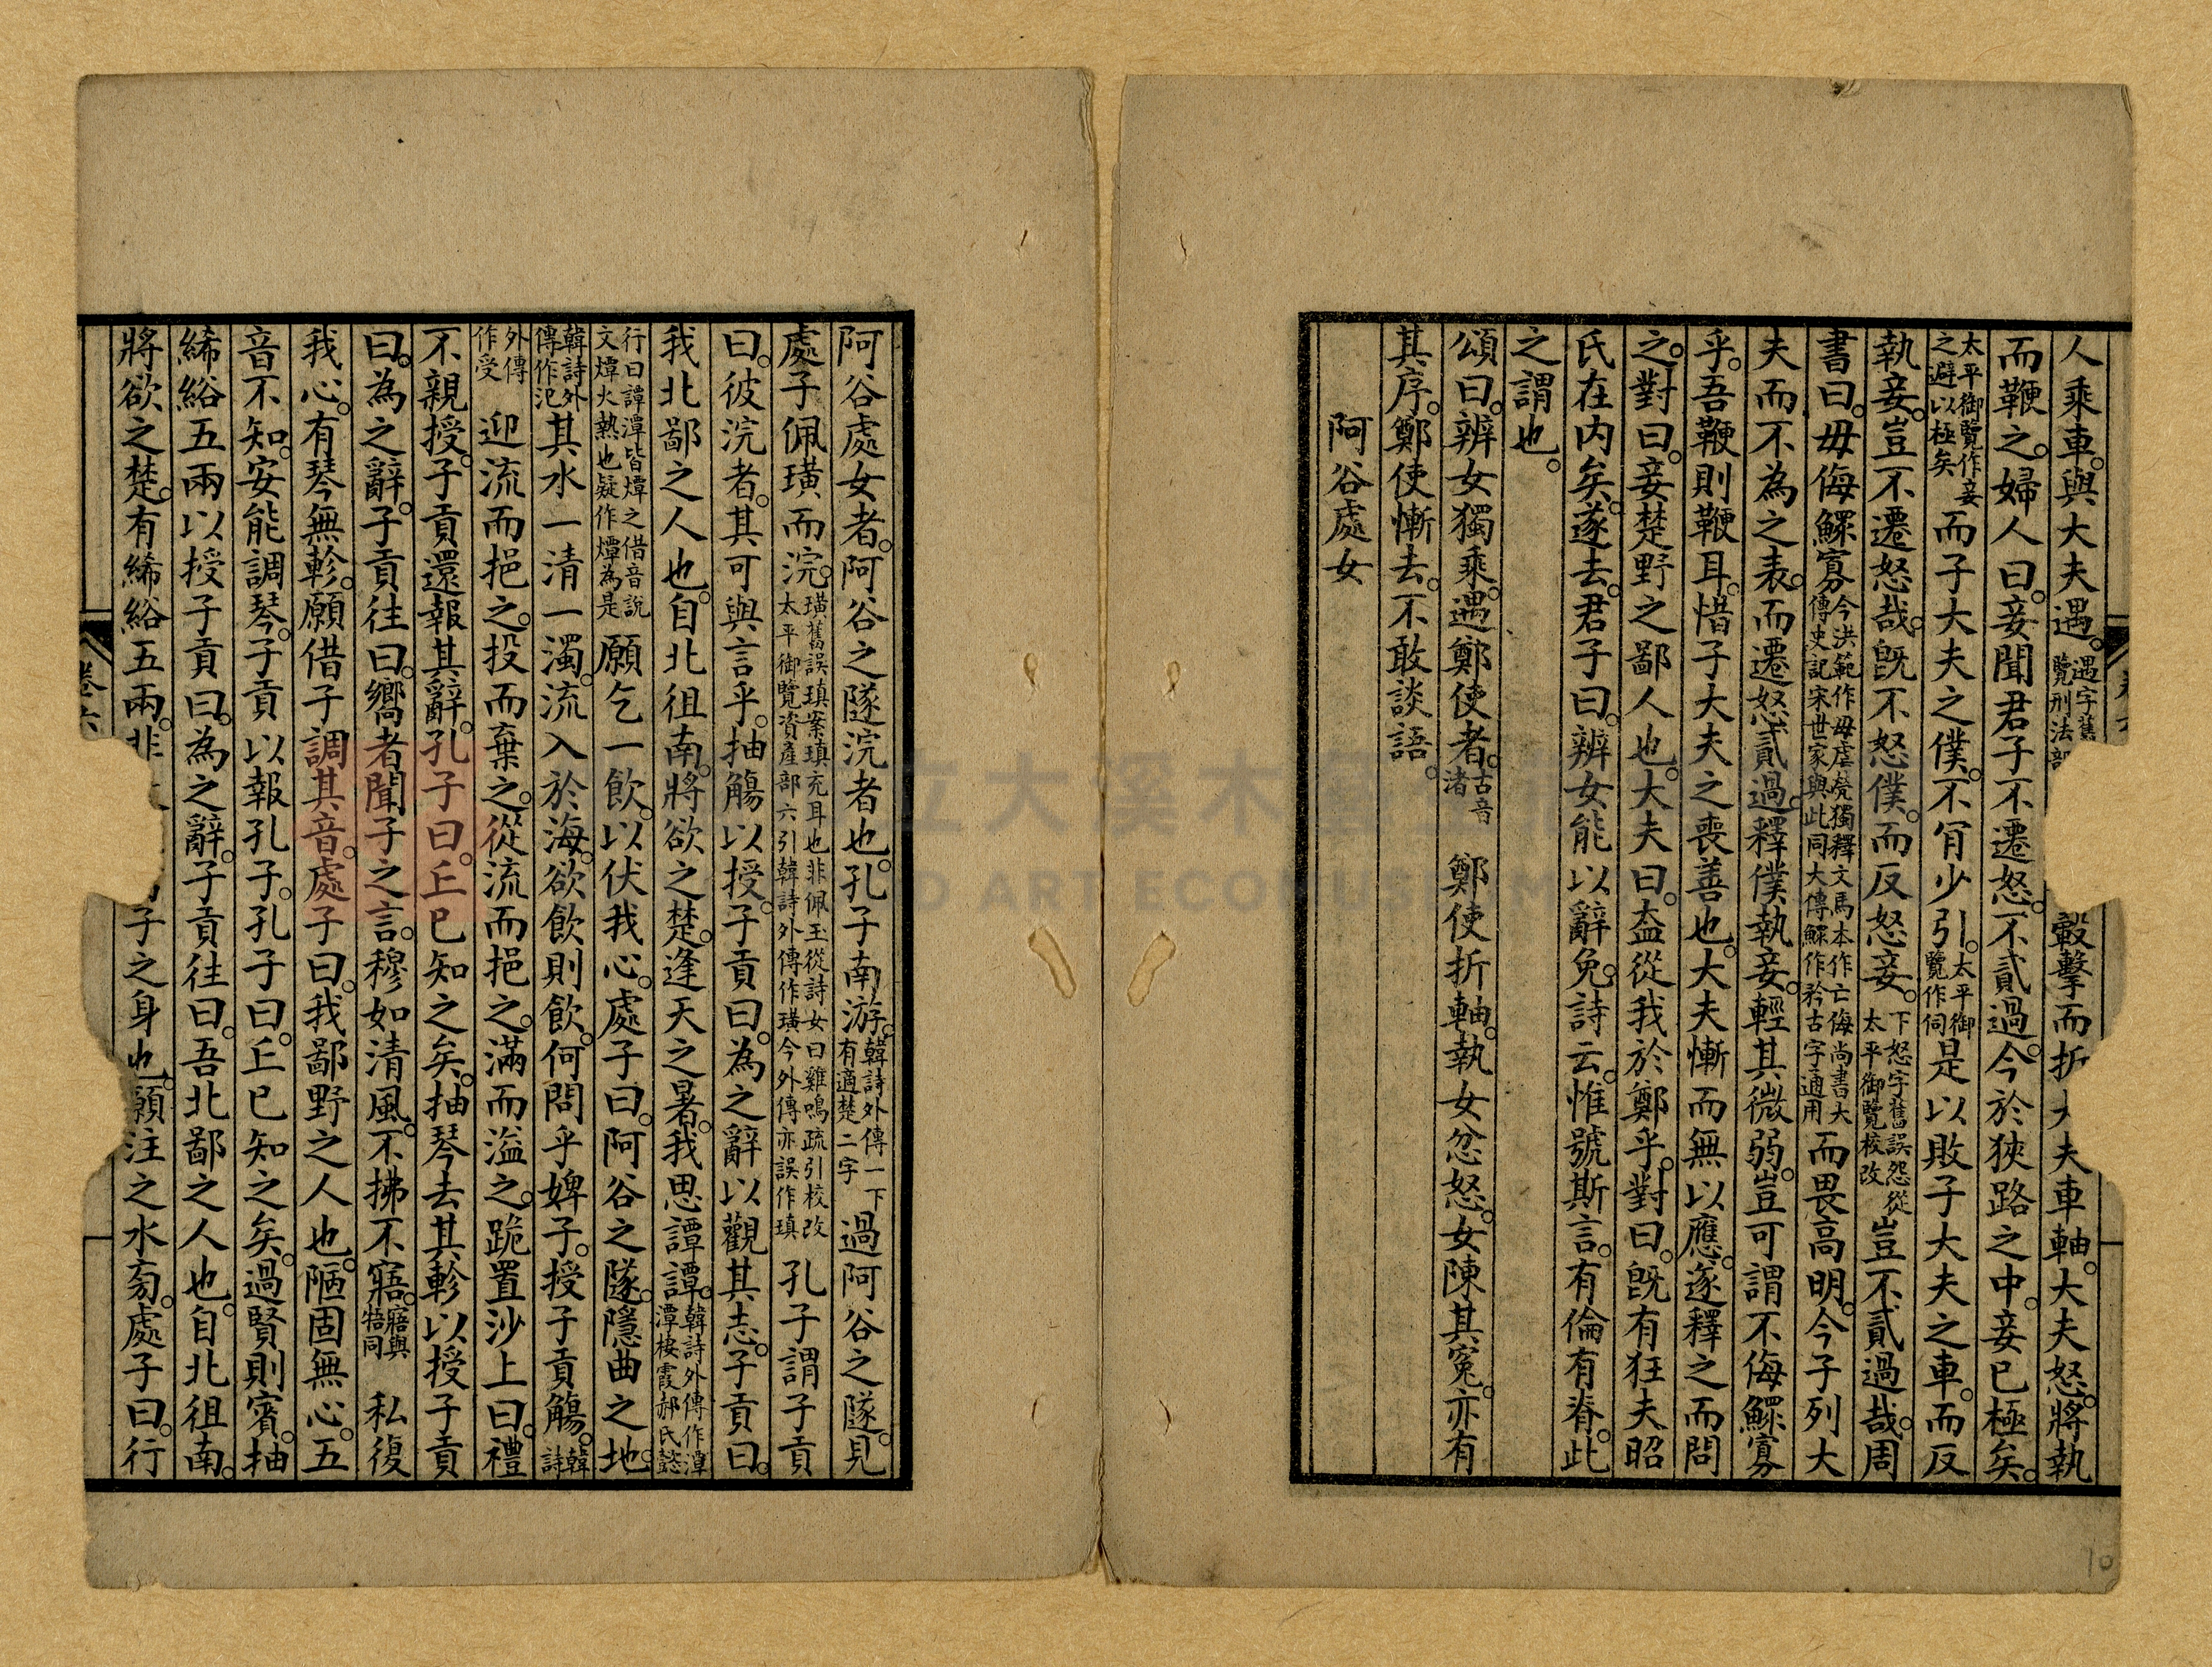 人乘車與大夫遇。遇字舊 覽刑法部 轂擊而折大夫車軸。大夫怒。將執
而鞭之。婦人曰。妾聞君子不遷怒。不貳過。今於狹路之中。妾已極矣。
太平御覽作妾之避以極矣 而子大夫之僕。不肎少引。太平御覽作伺 是以敗子大夫之車。而反
執妾。豈不遷怒哉。旣不怒僕。而反怒妾。下怒字舊誤怨從太平御覽校改 豈不貳過哉。周
書曰。毋侮鰥寡。今洪範作毋虐煢獨釋文馬本作亡侮尚書大傳史記宋世家與此同大傳鰥作矜古字通用 而畏高明。今子列大
夫而不為之表。而遷怒貳過。釋僕執妾。輕其微弱。豈可謂不侮鰥寡
乎。吾鞭則鞭耳。惜子大夫之喪善也。大夫慚而無以應。遂釋之而問
之。對曰。妾楚野之鄙人也。大夫曰。盍從我於鄭乎。對曰。旣有狂夫昭
氏在內矣。遂去。君子曰。辨女能以辭免。詩云。惟號斯言。有倫有脊。此
之謂也。
頌曰。辨女獨乘。遇鄭使者。古音渚 鄭使折軸。執女忿怒。女陳其冤。亦有
其序。鄭使慚去。不敢談語。
阿谷處女
阿谷處女者。阿谷之隧浣者也。孔子南游。韓詩外傳一下有適楚二字 過阿谷之隧。見
處子佩璜而浣。璜舊誤瑱案瑱充耳也非佩玉從詩女曰雞鳴疏引校改太平御覽資產部六引韓詩外傳作璜今外傳亦誤作瑱 孔子謂子貢
曰。彼浣者。其可與言乎。抽觴以授子貢曰。為之辭以觀其志。子貢曰。
我北鄙之人也。自北徂南。將欲之楚。逢天之暑。我思譚譚。韓詩外傳作潭潭棲霞郝氏懿
行曰譚潭皆燂之借音說文燂火熱也疑作燂為是 願乞一飲。以伏我心。處子曰。阿谷之隧。隱曲之地。
韓詩外傳作氾 其水一清一濁。流入於海。欲飲則飲。何問乎婢子。授子貢觴。韓詩
外傳作受 迎流而挹之。投而棄之。從流而挹之。滿而溢之。跪置沙上曰。禮
不親授。子貢還報其辭。孔子曰。丘已知之矣。抽琴去其軫以授子貢
曰。為之辭。子貢往曰。嚮者聞子之言。穆如清風。不拂不寤。寤與牾同 私復
我心。有琴無軫。願借子調其音。處子曰。我鄙野之人也。陋固無心。五
音不知。安能調琴。子貢以報孔子。孔子曰。丘已知之矣。過賢則賓。抽
絺綌五兩以授子貢曰。為之辭。子貢往曰。吾北鄙之人也。自北徂南。
將欲之楚。有絺綌五兩。非 子之身也。願注之水旁。處子曰。行
卷六
國立大溪木藝生態博物館
DAXI WOOD ART ECOMUSEUM
10